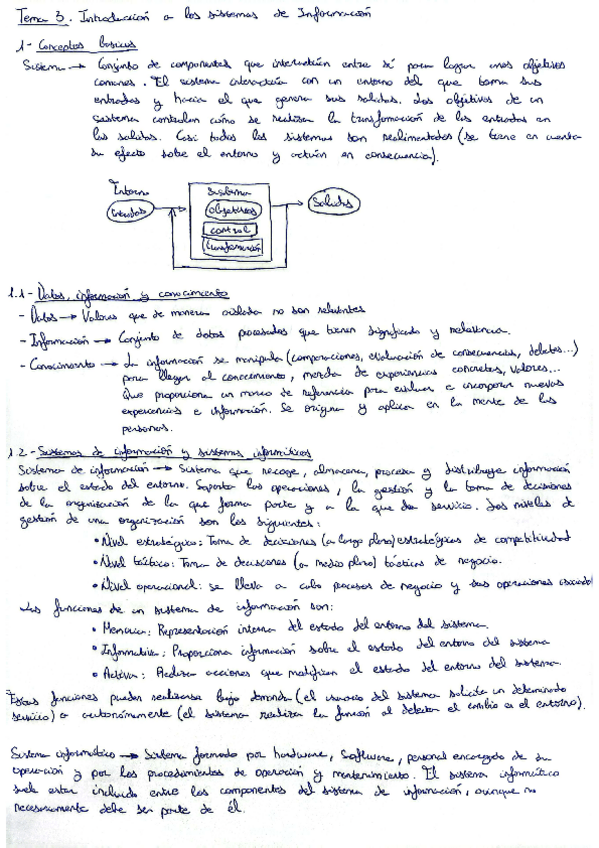 Tema 3. Introducción a los sistemas de Información
1- Conceptos basicos
Sistema → Conjunto de componentes que interactúan entre sí para lograr unos objetivos
comunes. El sistema interactúa con un entorno del que toma sus
entradas y hacia el que genera sus salidas. Los objetivos de un
sistema controlan cómo se realiza la transformación de las entradas en
las salidas. Casi todos los sistemas son realimentados (se tiene en cuenta
su efecto sobre el entorno y actúan en consecuencia).
Entorno
Sistema
Entradas
objetivos
Salidas
control
transformación
1.1- Datos, información y conocimiento
- Datos → Valores que de manera aislada no son relevantes
- Información → Conjunto de datos procesados que tienen significado y relevancia.
- Conocimiento → La información se manipula (comparaciones, evaluación de consecuencias, debates...)
para llegar al conocimiento, mezcla de experiencias concretas, valores...
Que proporciona un marco de referencia para evaluar e incorporar nuevas
experiencias e información. Se origina y aplica en la mente de las
personas.
1.2- Sistemas de información y sistemas informáticos
Sistema de información → Sistema que recoge, almacena, procesa y distribuye información
sobre el estado del entorno. Soporta las operaciones, la gestión y la toma de decisiones
de la organización de la que forma parte y a la que da servicio. Los niveles de
gestión de una organización son los siguientes:
• Nivel estratégico: Toma de decisiones (a largo plazo) estratégicas de competitividad
• Nivel táctico: Toma de decisiones (a medio plazo) tácticas de negocio.
• Nivel operacional: se lleva a cabo procesos de negocio y sus operaciones asociadas
Las funciones de un sistema de información son:
• Memoria: Representación interna del estado del entorno del sistema.
• Informativa: Proporciona información sobre el estado del entorno del sistema
• Activa: Realiza acciones que modifican el estado del entorno del sistema.
Estas funciones pueden realizarse bajo demanda (el usuario del sistema solicita un determinado
servicio) o autonómamente (el sistema realiza la función al detectar el cambio en el entorno).
Sistema informático → Sistema formado por hardware, Software, personal encargado de su
operación y por los procedimientos de operación y mantenimiento. El sistema informático
suele estar incluido entre los componentes del sistema de información, aunque no
necesariamente debe ser parte de él.